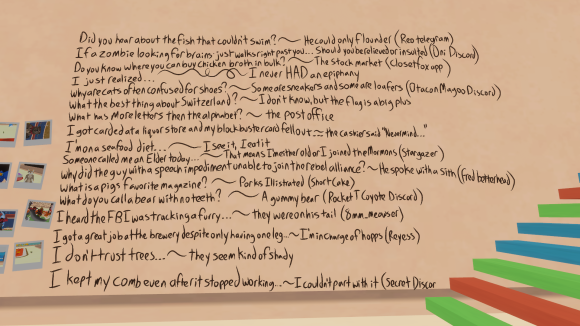 Did you hear about the fish that couldn't swim? ~ He could only flounder (Reo telegram)
If a zombie looking for brains just walks right past you... Should you be relieved or insulted (Oni Discord)
Do you know where you can buy chicken broth in bulk? ~ The stock market (Closetfox app)
I just realized... ~ I never HAD an epiphany
Why are cats often confused for shoes? ~ Some are sneakers and some are loafers (Otacon Magoo Discord)
What the best thing about Switzerland? ~ I don't know, but the flag is a big plus
What has more letters then the alphabet? ~ the post office
I got carded at a liquor store and my blockbuster card fell out. ~ the cashier said "Nevermind..."
I'm on a seafood diet... ~ I see it, I eat it
Someone called me an Elder today... ~ That means I'm either old or I joined the Mormons (Stargazer)
Why did the guy with a speech impediment unable to join the rebel alliance? ~ He spoke with a sith (fred batterhead)
What is a pigs favorite magazine? ~ Porks Illistrated (Short Cake)
What do you call a bear with no teeth? ~ A gummy bear (Rocket T Coyote Discord)
I heard the FBI was tracking a furry... ~ they were on his tail (8mm_meowser)
I got a great job at the brewery despite only having one leg.. ~ I'm in charge of hopps (Reyess)
I don't trust trees... ~ they seem kind of shady
I kept my comb even after it stopped working... ~ I couldn't part with it (Secret Discor